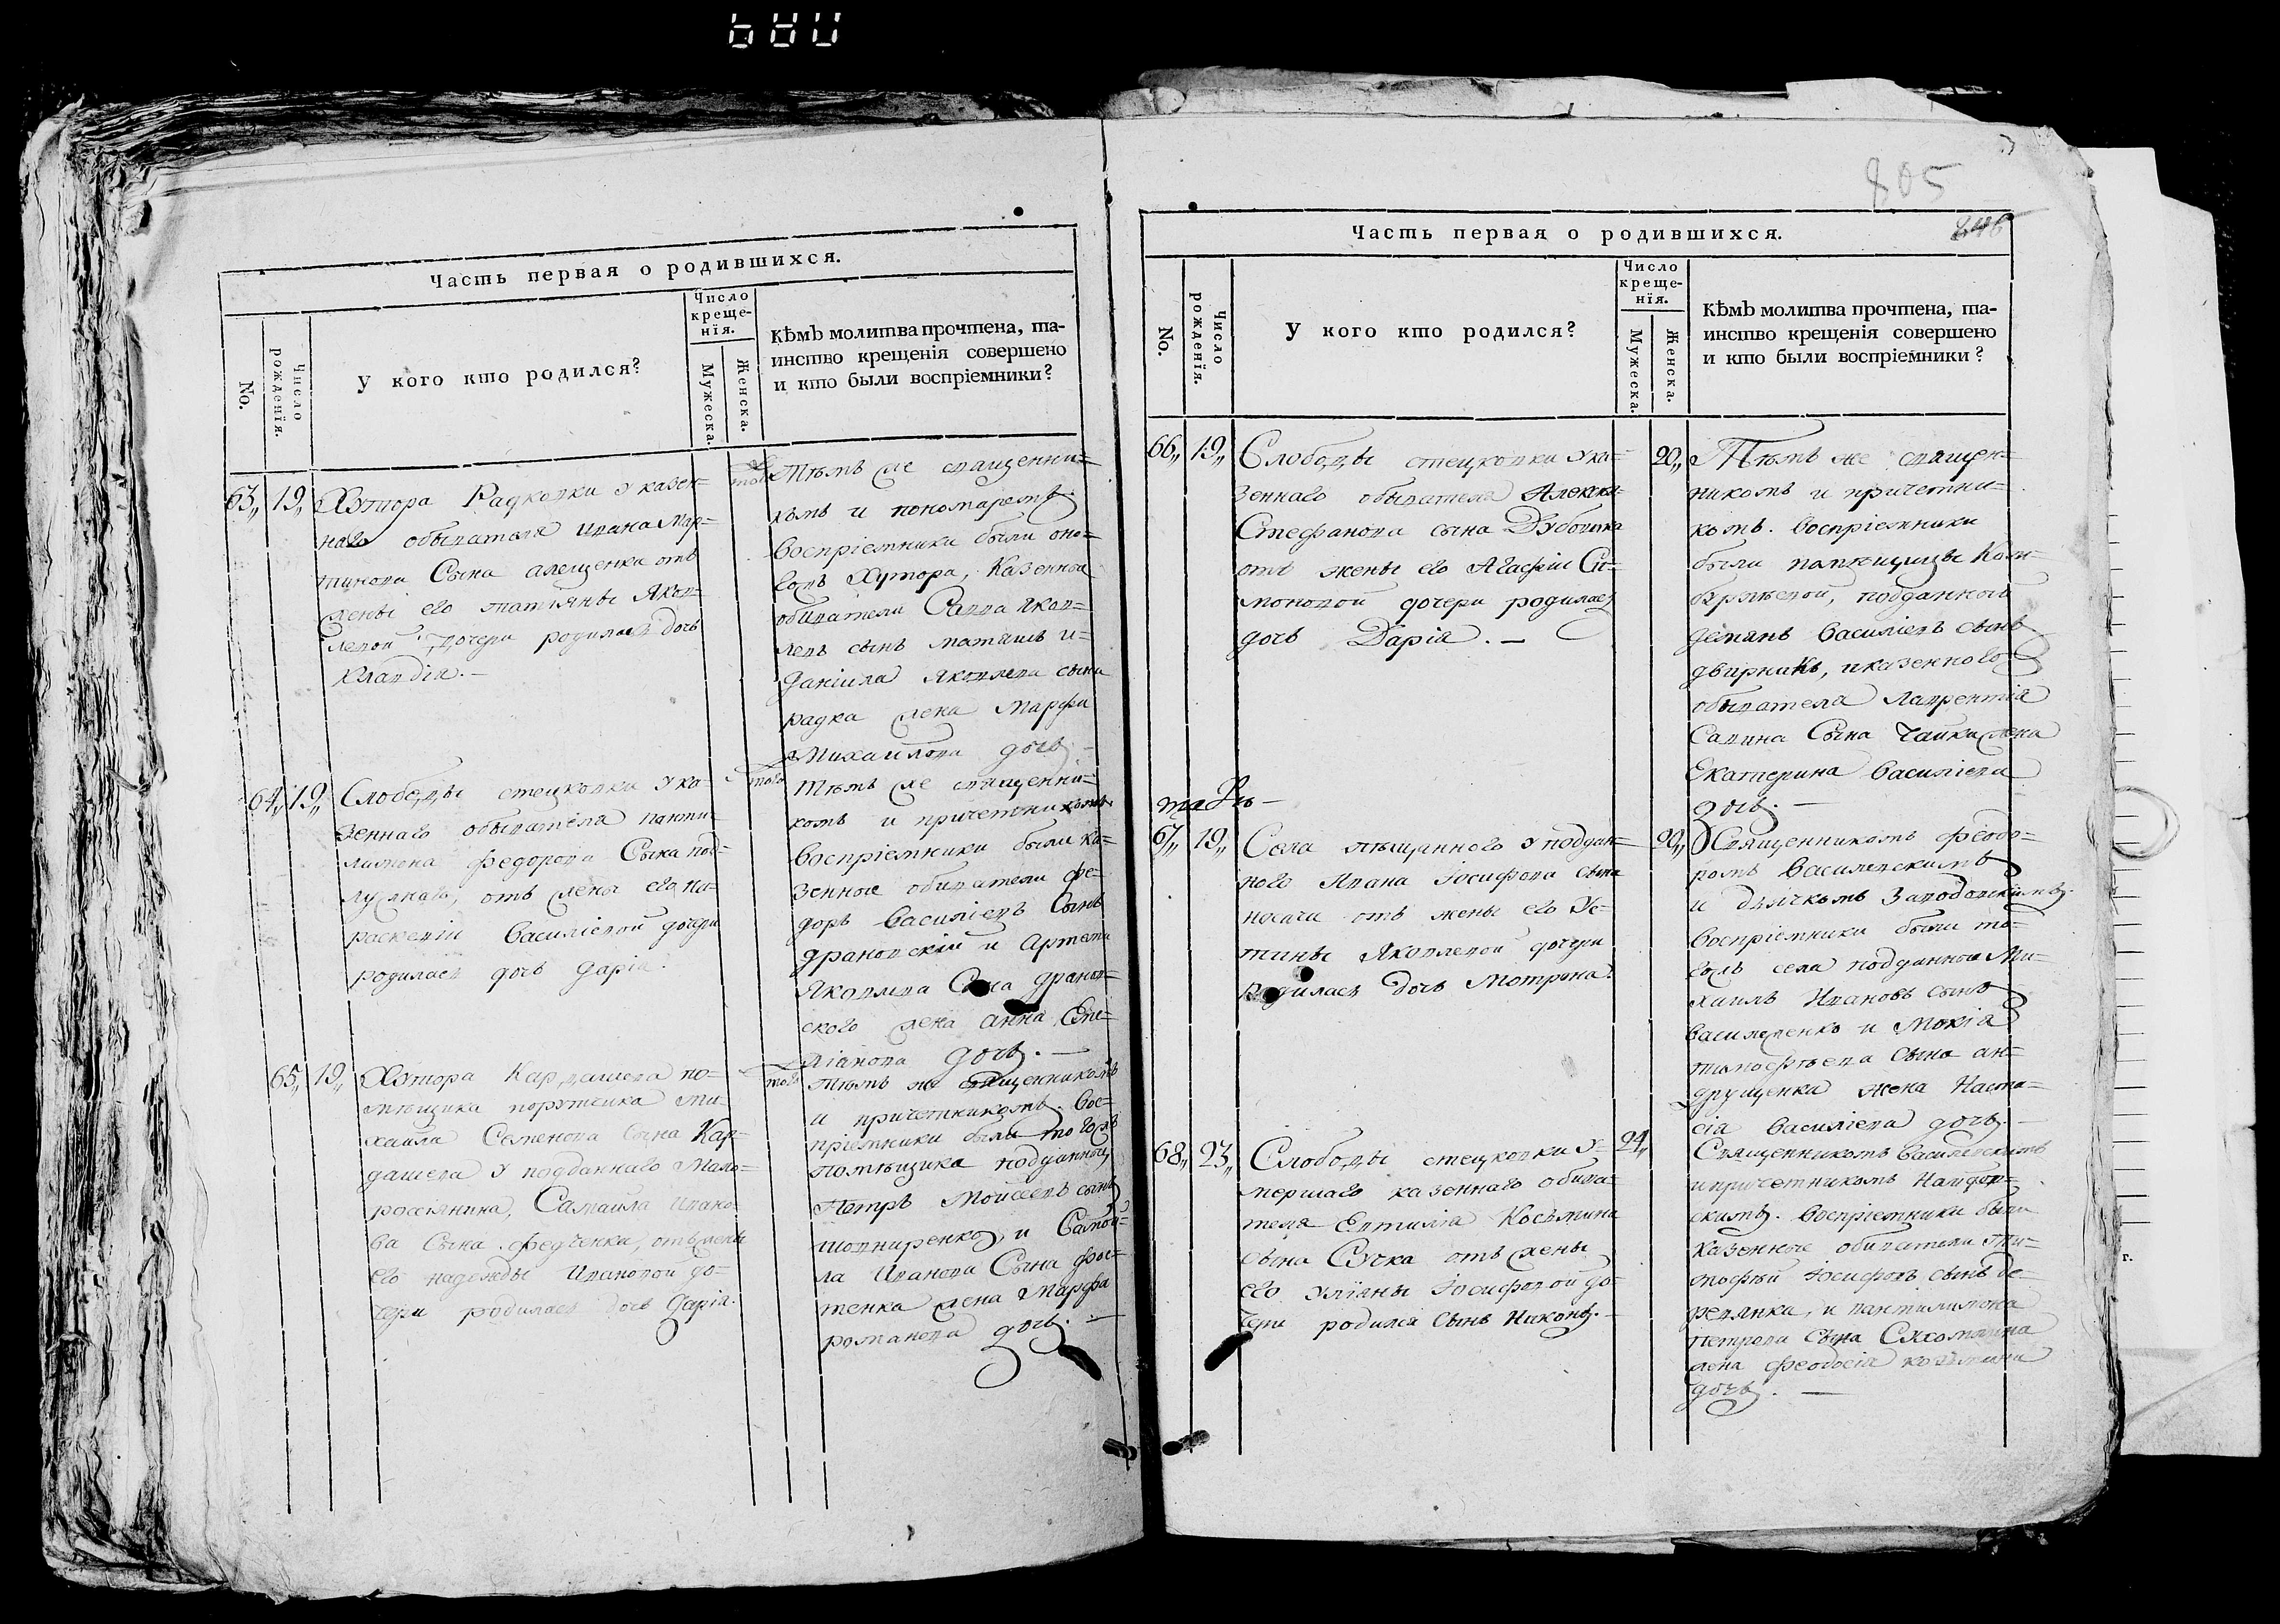 Часть первая о родившихся.
No.
Число рожденїя.
У кого кто родился?
Число
креще-
нїя.
Мужеска.
Женска.
Кѣмъ молитва прочтена, та-
инство крещенія совершено
и кто были воспріемники?
63,, 19,, Хутора Радковки у казен-
наго обывателя Ивана Мар-
тинова Сына алещенка отъ
жены его татіяны Яков-
левой дочери родилась дочь
Клавдія. —
того
Тѣмъ же священни-
комъ и пономаремъ
воспріемники были оно-
гожъ Хутора, Казенной
обыватели Савва яков-
левъ сынъ и-
Даніила яковлева сына
радка жена Марфа
Михаилова дочь —
64,, 19,, Слободы стецковки у ка-
зеннаго обывателя панти-
лимона федорова Сына под-
лужнаго, отъ жены его па-
раскевіи Василіевой дочери
родилась дочь дарія.
того
тѣмъ же священни-
комъ и причетникомъ
воспріемники были ка-
зенные обыватели фе-
доръ Василіевъ Сынъ
драновскій и Артема
Яковлева Сына дранов-
ского жена анна Сте-
дочь. —
65,, 19,, Хутора Кардашева по-
мѣщика поручика Ми
хаила Семенова Сына Кар-
дашева у подданнаго Мало-
россіянина, Самоила Ивано-
ва Сына федченка, отъ жены
его надежды Ивановой до-
чери родилась дочь Дарія.
того
тѣмъ же священникомъ
и причетникомъ. Вос-
пріемники были того жъ
помѣщика подданный
Петръ Моисеевъ сынъ
шопнренко, и Самой-
ла Иванова Сына фос-
тенка жена Марфа
романова дочь. —
805
Часть первая о родившихся.
No.
Число рожденїя.
У кого кто родился?
Число
креще-
нїя.
Мужеска.
Женска.
Кѣмъ молитва прочтена, та-
инство крещенія совершено
и кто были воспріемники?
66,, 19,, Слободы стецковки у ка-
зеннаго обывателя Алекс
Стефанова сына Дубовика
отъ жены его Агафіи Си-
моновой дочери родилась
дочь Дарія. —
20,,
Тѣмъ же священ-
никомъ и причетни-
комъ. Воспріемники
были помѣщицы Кон-
подданной
демянъ Василіевъ сынъ
двирникъ, и казенного
обывателя Лаврентія
Савина Сына Чайки жена
Екатерина Василіева
дочь. —
67,, 19,, Села пѣщанного у поддан-
ного Ивана іосифова сына
носача отъ жены его Ус-
тины Яковлевой дочери
родилась дочь Мотрона.
20,,
Священникомъ Феодо-
ромъ Василевскимъ
и дячкомъ
воспріемники были то-
гожъ села подданной Ми-
хаилъ Ивановъ сынъ
василченко и Мокія
тимофѣева сына ан-
друщенка жена Наста-
сія Василіева дочь. —
68,, 23,, Слободы стецковки у-
мершаго казеннаго обыва-
теля Евтихія Косьмина
сына Сучка отъ жены
его уліяны іосифовой до-
чери родился Сынъ Никонъ. —
24,,
Священникомъ Василевскимъ
и причетникомъ
скимъ. Воспріемники были
казенные обыватели Ти-
мофѣй іосифовъ сынъ де-
ревянка, и пантилимона
петрова Сына Сахомлина
жена феодосія козьмина
дочь. —